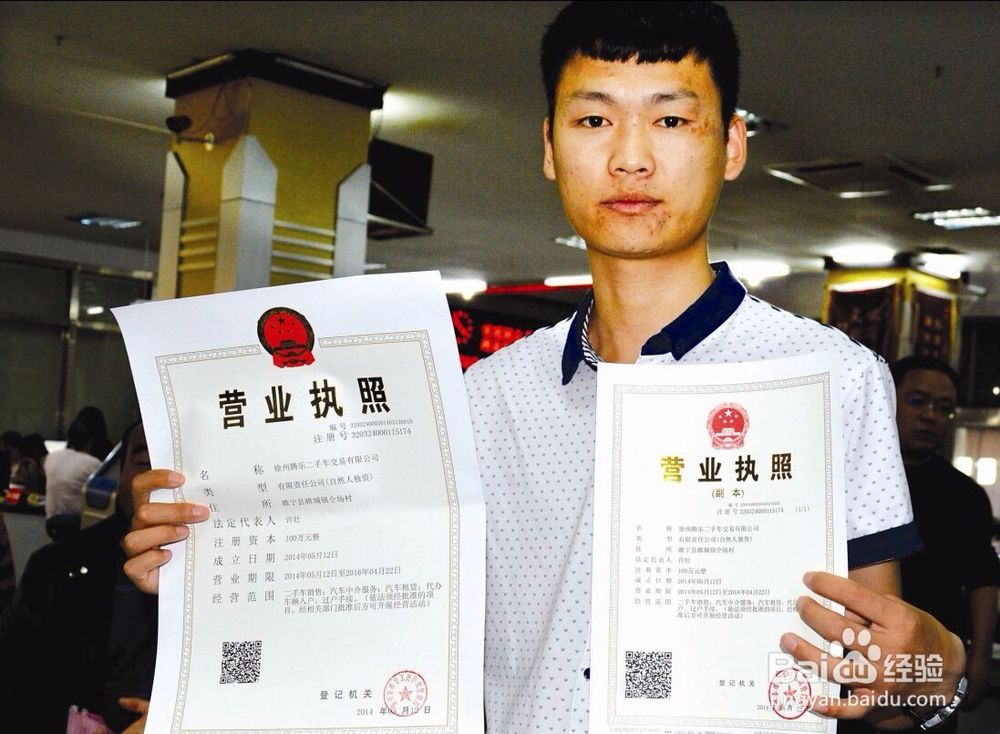 营业执照
编 号 320324000201405120019
注 册 号 320324000115174
名 称 徐州腾乐二手车交易有限公司
类 型 有限责任公司(自然人独资)
住 所 睢宁县睢城镇全场村
法定代表人 许壮
注册资本 100万元整
成立日期 2014年05月12日
营业期限 2014年05月12日至2016年04月22日
经营范围 二手车销售；汽车中介服务；汽车租赁；代办
车辆入户、过户手续。（依法须经批准的项
目，经相关部门批准后方可开展经营活动）
登记机关
2014 年05月12日
营业执照
(副 本)
注册号 320324000115174 (1/1)
名 称 徐州腾乐二手车交易有限公司
类 型 有限责任公司(自然人独资)
住 所 睢宁县睢城镇全场村
法定代表人 许壮
注册资本 100万元整
成立日期 2014年05月12日
营业期限 2014年05月12日至2016年04月22日
经营范围 二手车销售；汽车中介服务；汽车租赁；代
户、过户手续。（依法须经批准的项
准后方可开展经营活动）
登记机关
Baidu 经验
jingyan.baidu.com